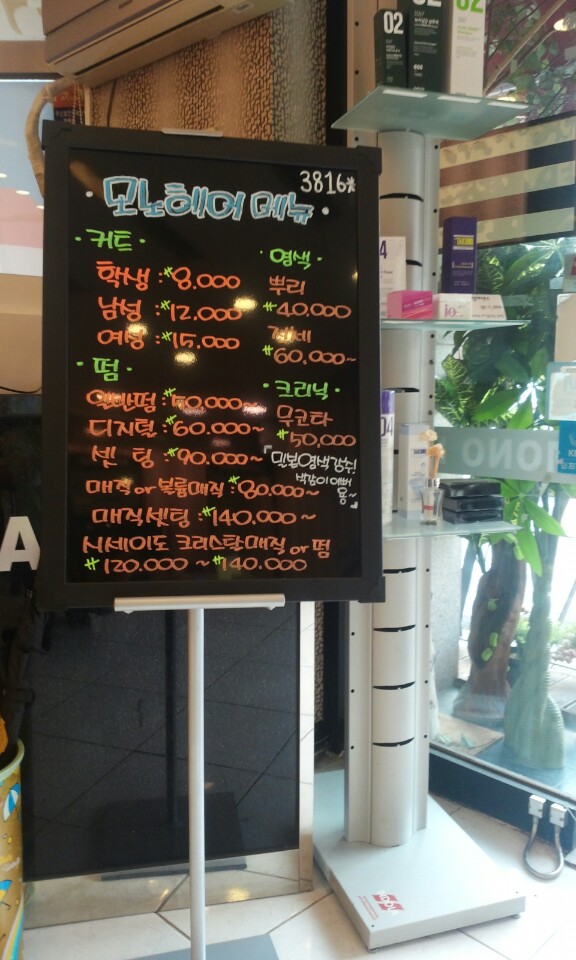 3816*
· 모노헤어 메뉴 ·
· 커트 ·
학생 : ₩8.000
남성 : ₩12.000
여성 : ₩15.000
· 펌 ·
일반펌 : ₩50.000~
디지털 : ₩60.000~
셋 팅 : ₩90.000~
매직 or 볼륨매직 : ₩80.000~
매직셋팅 : ₩140.000~
시세이도 크리스탈매직 or 펌
₩120.000 ~ ₩140.000
· 염색 ·
뿌리
₩40.000
전체
₩60.000~
· 크리닉 ·
무코타
₩50,000
「일본염색강추!
색감이 이뻐
용~」
02
02
02
04
io
MONO
A